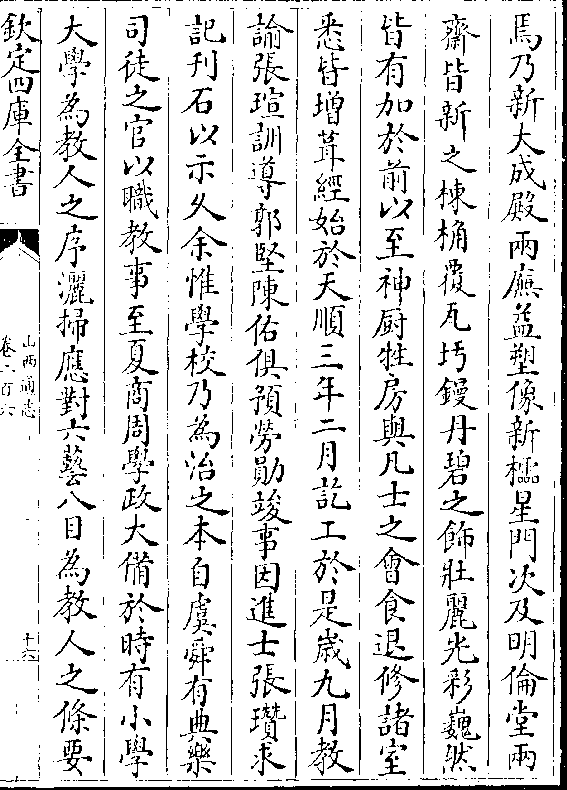 焉乃新大成殿兩廡益塑像新櫺星門次及明倫堂兩
齋皆新之棟桷覆瓦圬鏝丹碧之飾壯麗光彩巍然
皆有加於前以至神厨牲房與凡士之會食退修諸室
悉皆增葺經始於天順三年二月訖工於是歲九月教
諭張瑄訓導郭堅陳佑俱預勞勩竣事因進士張瓚求
記刋石以示久余惟學校乃為治之本自虞舜有典樂
司徒之官以職教事至夏商周學政大備於時有小學
大學為教人之序灑掃應對六藝八目為教人之條要
欽定四庫全書
山西通志
卷二百六
十六